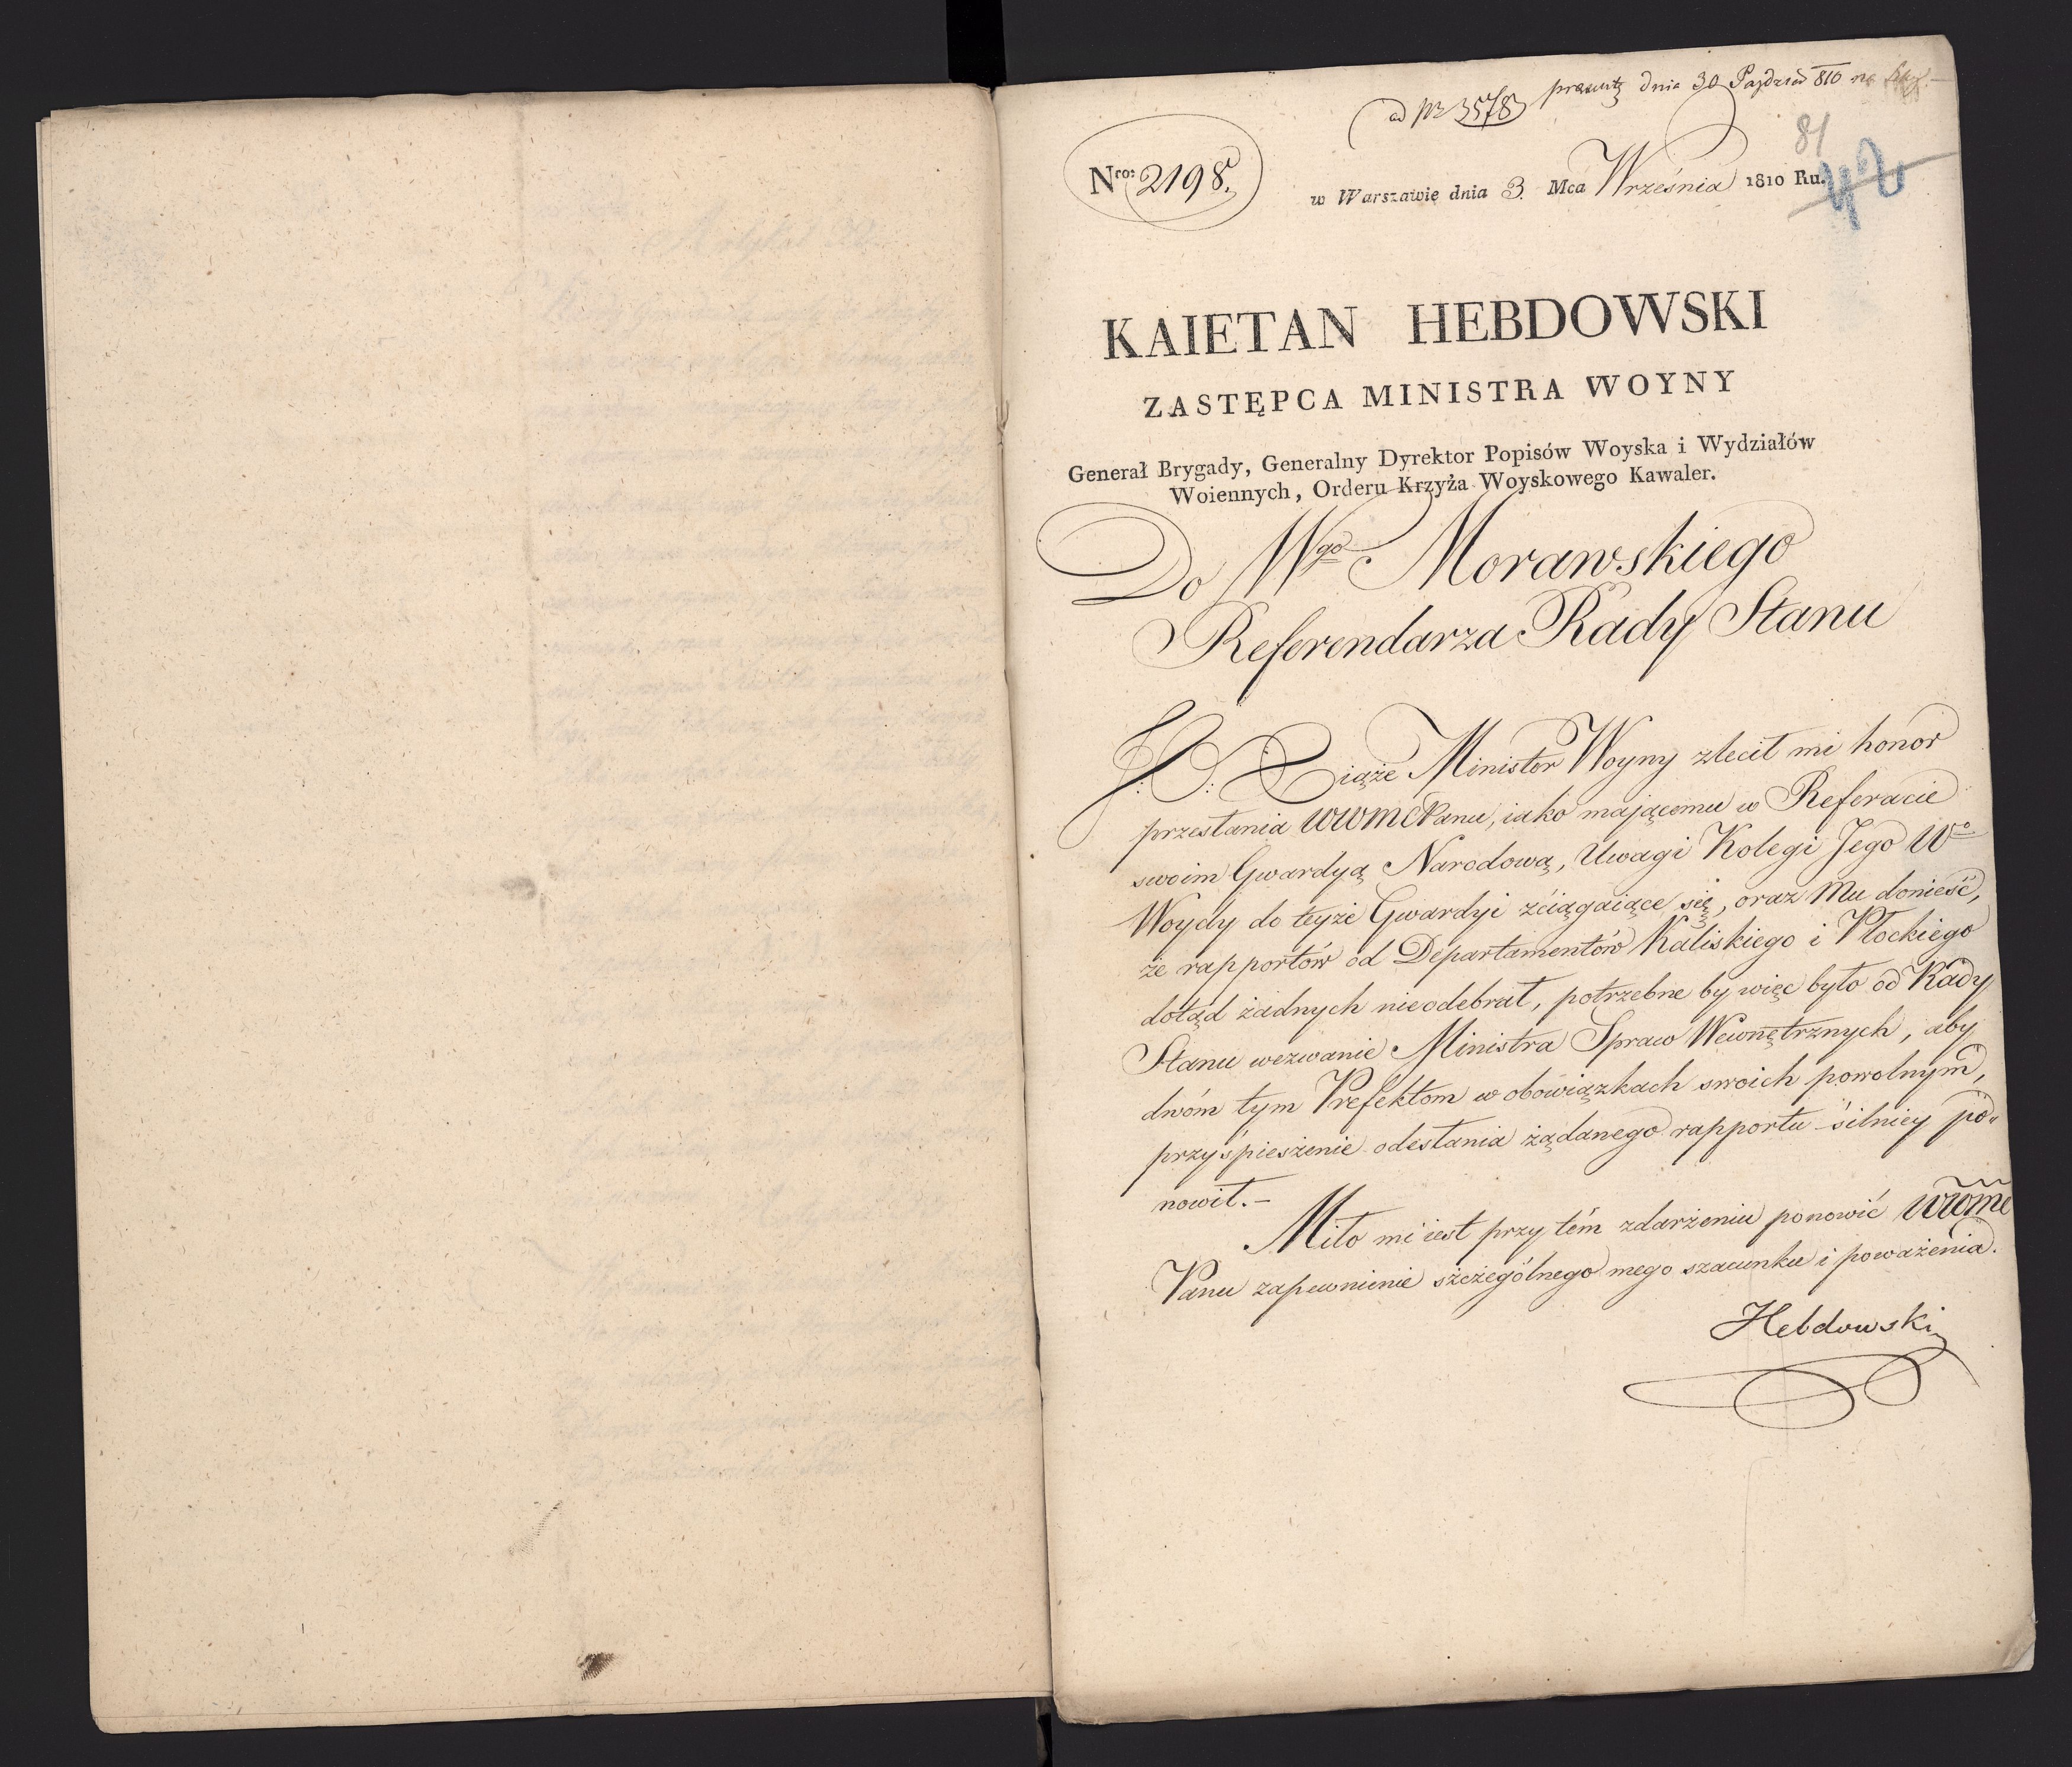 ad Nr 3578 praesentą dnia 30 Pazdzier 810
81
42
Nro: 2198.
w Warszawie dnia 3. Mca Września 1810 Ru.
KAIETAN HEBDOWSKI
ZASTĘPCA MINISTRA WOYNY
Generał Brygady, Generalny Dyrektor Popisów Woyska i Wydziałów
Woiennych, Orderu Krzyża Woyskowego Kawaler.
Do Wgo Morawskiego
Referendarza Rady Stanu
J: O: Xiąże Minister Woyny zlecił mi honor
przesłania WWMCPanu, iako mającemu w Referacie
swoim Gwardyą Narodową, Uwagi Kolegi Jego Wo
Woydy do teyże Gwardyi zciągaiące się, oraz Mu donieść,
że rapportów od Departamentów Kaliskiego i Płockiego
dotąd żadnych nieodebrał, potrzebne by więc było od Rady
Stanu wezwanie Ministra Spraw Wewnętrznych, aby
dwóm tym Prefektom w obowiązkach swoich powolnym,
przyśpieszenie odesłania żądanego rapportu silniey po=
nowił.–
Miło mi iest przy tém zdarzeniu ponowić WWMC
Panu zapewnienie szczególnego mego szacunku i poważenia.
Hebdowski